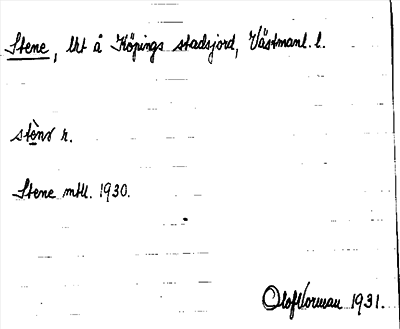 Stene, lht å Köpings stadsjord, Västmanl. l.
stènə r.
Stene mtll. 1930.
Olof Norman 1931.